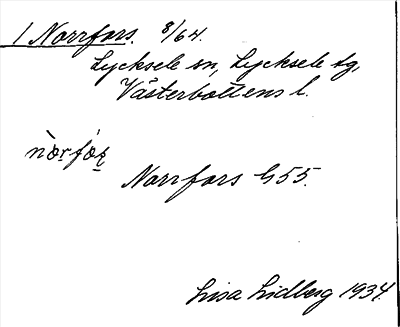 1 Norrfors. 8/64.
Lycksele sn, Lycksele tg,
Västerbottens l.
Norrfors G55.
Lisa Lidberg 1934.